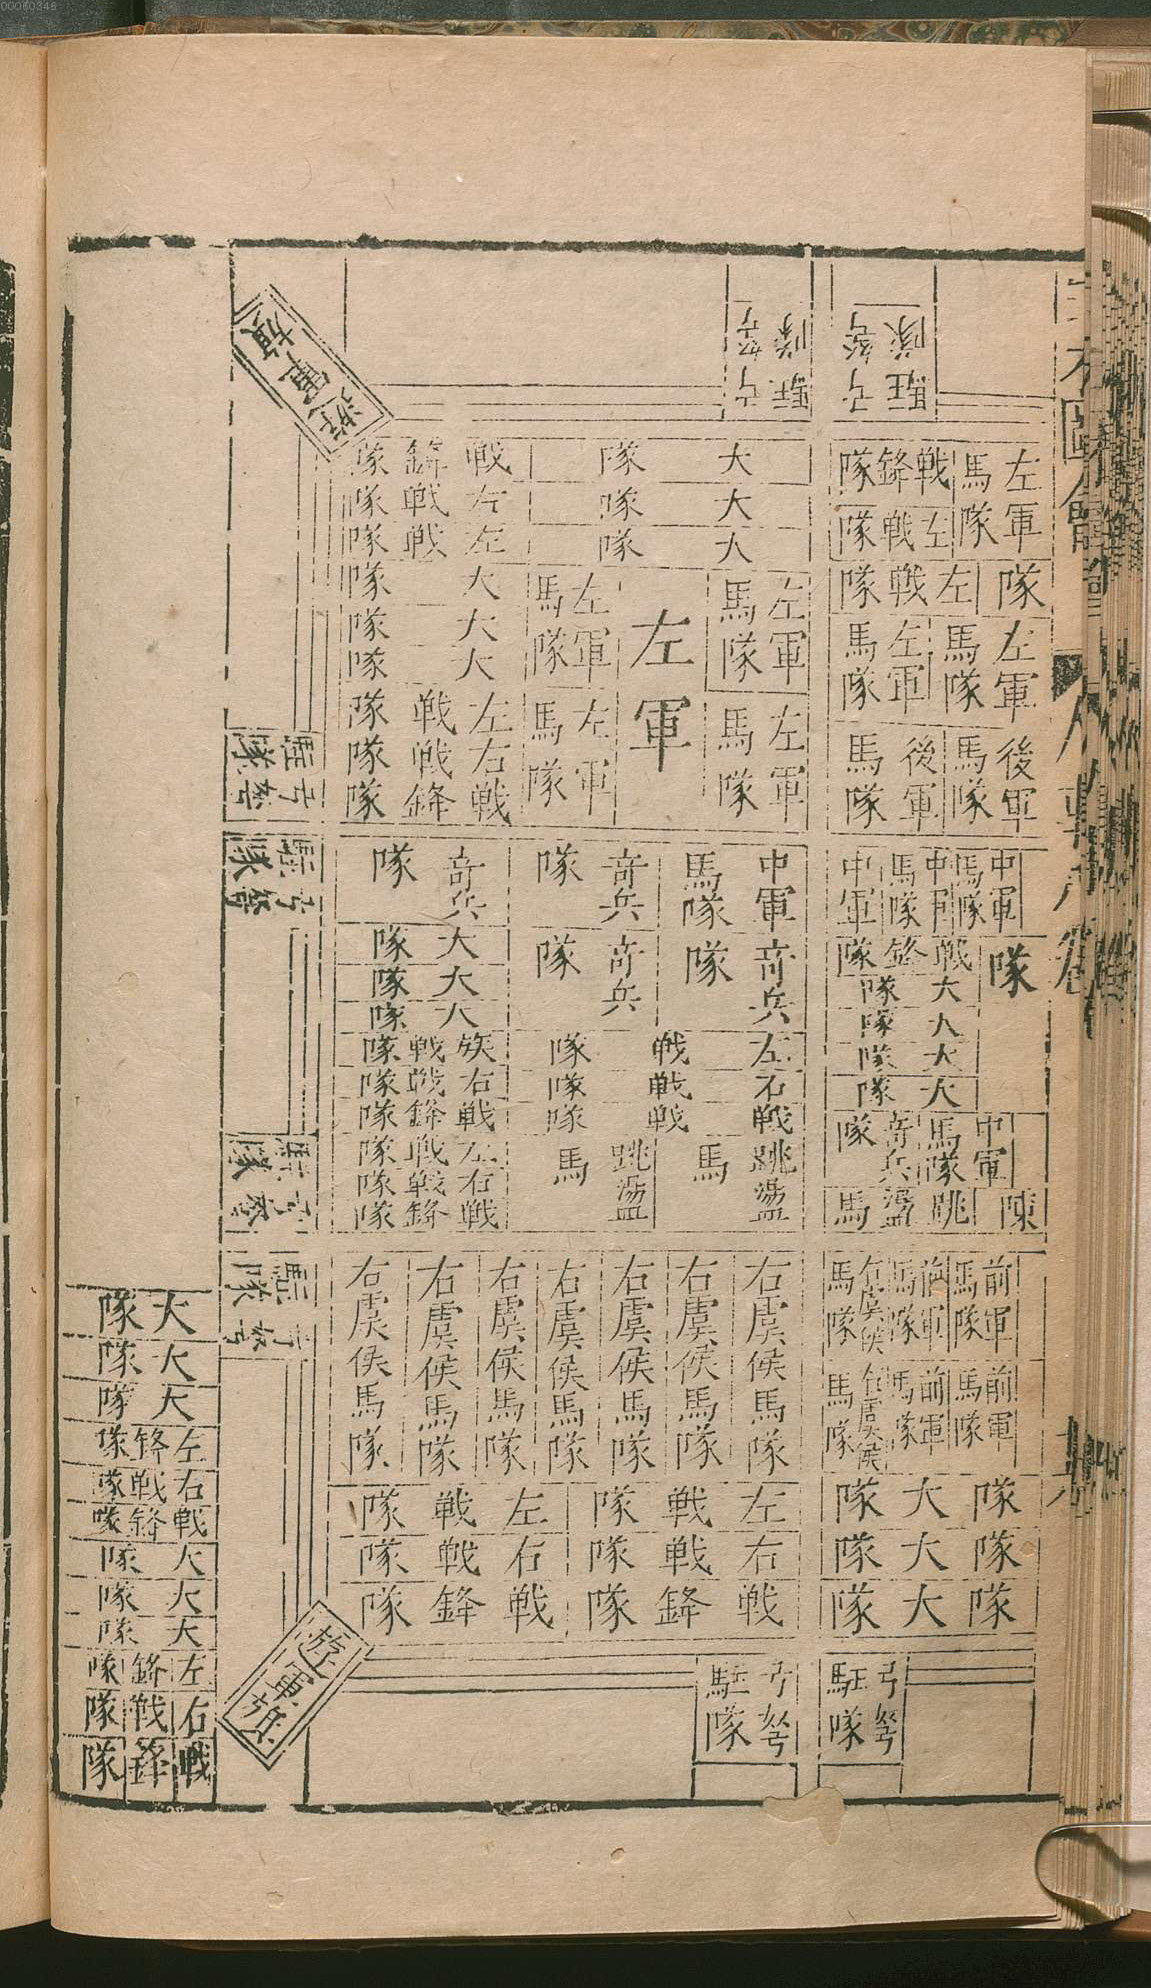 00060346
弓弩駐隊
弓弩駐隊
左軍馬隊
戰鋒隊
左戰隊
隊
左戰隊
左軍馬隊
左軍馬隊
後軍馬隊
後軍馬隊
中軍馬隊
中軍馬隊
中軍
隊
戰鋒隊
大隊
大隊
大隊
大隊
中軍馬隊
奇兵隊
跳盪馬
前軍馬隊
前軍馬隊
右虞候馬隊
前軍馬隊
前軍馬隊
右虞候馬隊
隊
隊
隊
大隊
大隊
大隊
弓弩駐隊
弓弩駐隊
大隊
大隊
大隊
左軍馬隊
左軍馬隊
左軍
左軍馬隊
左軍馬隊
戰鋒隊
左戰隊
左戰隊
大隊
大隊
大隊
左戰隊
右戰隊
戰鋒隊
中軍馬隊
奇兵隊
奇兵隊
奇兵隊
奇兵隊
大隊
大隊
大隊
左戰隊
右戰隊
戰戰隊
右戰隊
戰鋒隊
左戰隊
右戰隊
戰鋒隊
跳盪馬
跳盪馬
右虞候馬隊
右虞候馬隊
右虞候馬隊
右虞候馬隊
右虞候馬隊
右虞候馬隊
右虞候馬隊
左戰隊
右戰隊
戰鋒隊
左戰隊
右戰隊
戰鋒隊
遊軍
弓弩駐隊
弓弩駐隊
弓弩駐隊
弓弩駐隊
遊軍
大隊
大隊
大隊
左鋒隊
右戰隊
戰鋒隊
大隊
大隊
大隊
左鋒隊
右戰隊
戰鋒隊